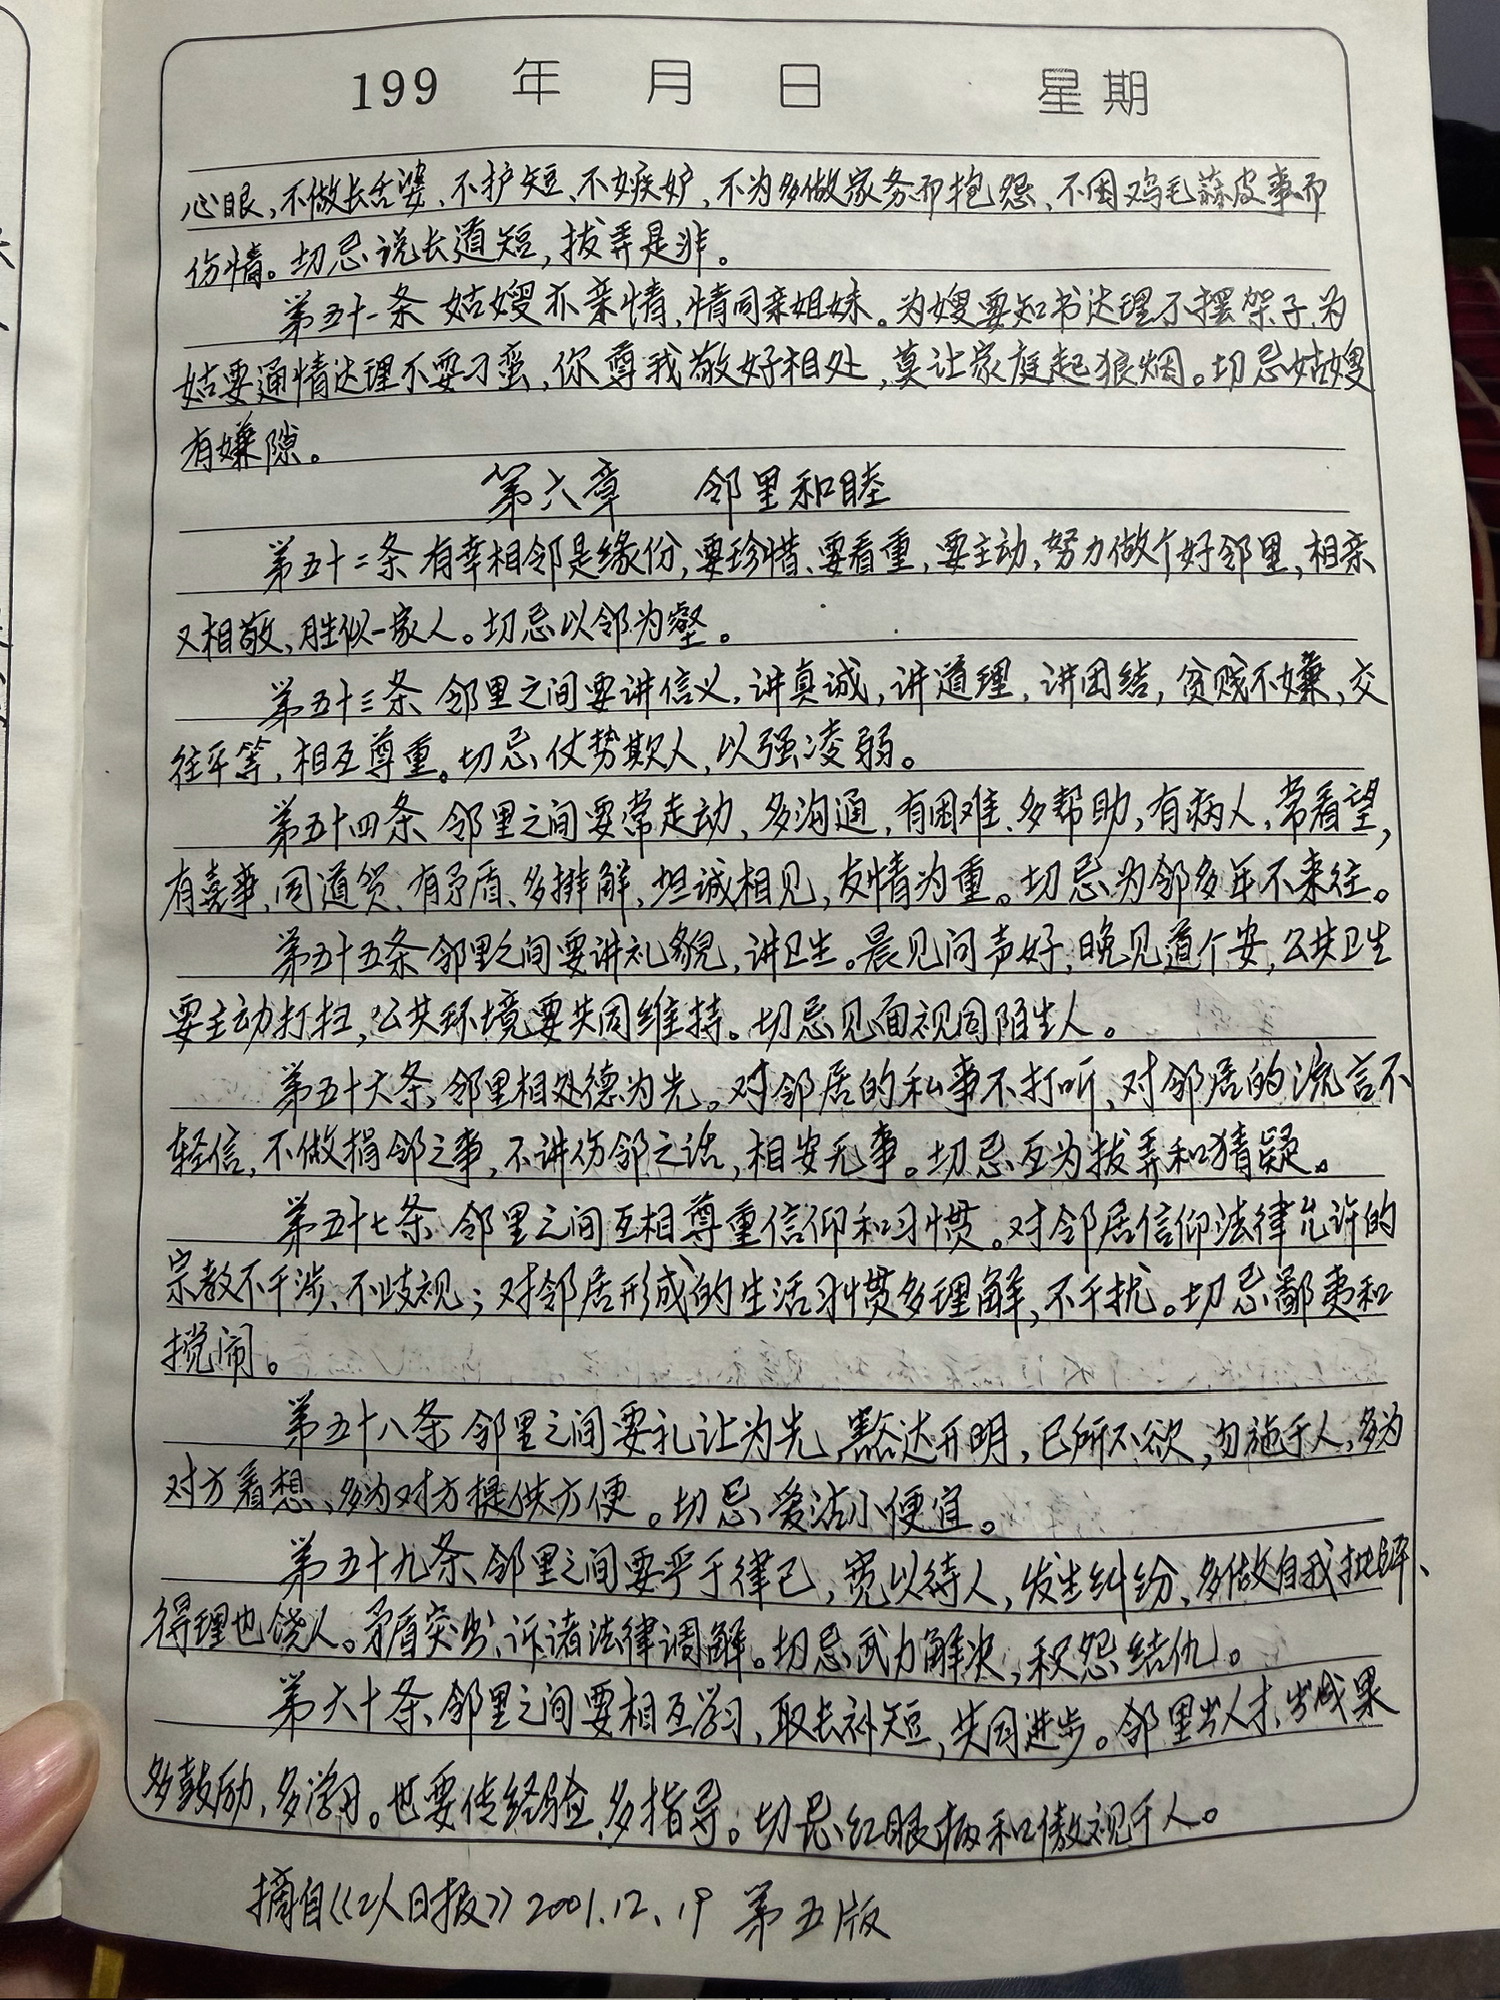 199 年 月 日 星期
心眼,不做长舌婆、不护短、不嫉妒,不为多做家务而抱怨、不因鸡毛蒜皮事而
伤情。切忌说长道短,拔弄是非。
第五十一条 姑嫂亦亲情,情同亲姐妹。为嫂要知书达理不摆架子,为
姑要通情达理不要刁蛮,你尊我敬好相处,莫让家庭起狼烟。切忌姑嫂
有嫌隙。
第六章 邻里和睦
第五十二条 有幸相邻是缘份,要珍惜、要看重,要主动,努力做个好邻里,相亲
又相敬,胜似一家人。切忌以邻为壑。
第五十三条 邻里之间要讲信义,讲真诚,讲道理,讲团结,贫贱不嫌,交
往平等,相互尊重。切忌仗势欺人,以强凌弱。
第五十四条 邻里之间要常走动,多沟通,有困难、多帮助,有病人,常看望,
有喜事,同道贺、有矛盾、多排解,坦诚相见,友情为重。切忌为邻多年不来往。
第五十五条 邻里之间要讲礼貌,讲卫生。晨见问声好,晚见道个安,公共卫生
要主动打扫,公共环境要共同维持。切忌见面视同陌生人。
第五十六条、邻里相处德为先。对邻居的私事不打听、对邻居的流言不
轻信,不做损邻之事,不讲伤邻之话,相安无事。切忌互为拔弄和猜疑。
第五十七条 邻里之间互相尊重信仰和习惯。对邻居信仰法律允许的
宗教不干涉、不歧视;对邻居形成的生活习惯多理解,不干扰。切忌鄙夷和
搅闹。
第五十八条 邻里之间要礼让为先,豁达开明,己所不欲,勿施于人,多为
对方着想、多为对方提供方便。切忌爱沾小便宜。
第五十九条 邻里之间要严于律己,宽以待人,发生纠纷、多做自我批评、
得理也饶人。矛盾突出、诉诸法律调解。切忌武力解决,积怨结仇。
第六十条、邻里之间要相互学习、取长补短,共同进步。邻里出人才、出成果
多鼓励,多学习。也要传经验、多指导。切忌红眼病和傲视于人。
摘自《工人日报》2001.12.19 第五版